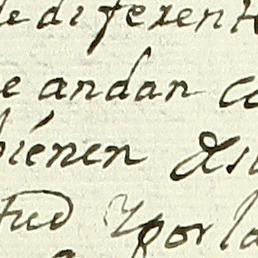 e diferent
e andan co
bienen
tud y por la